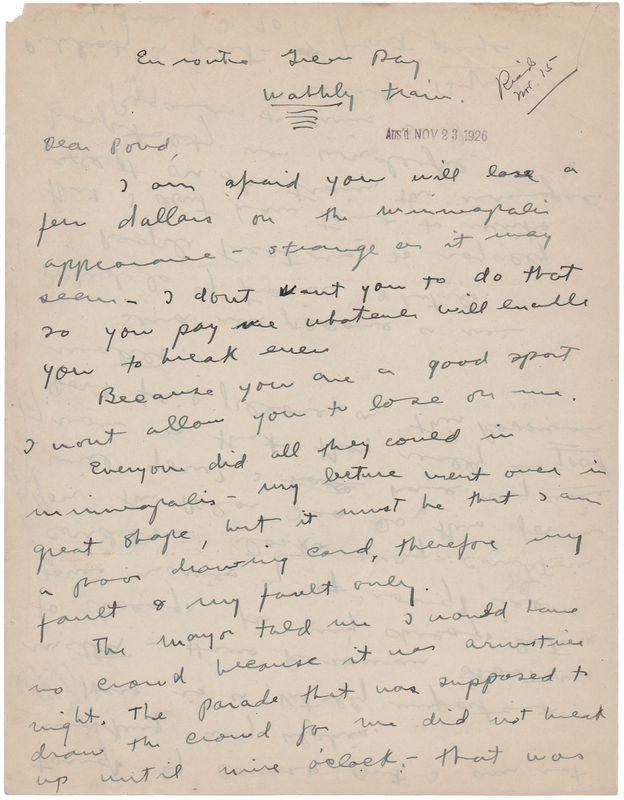 En route Green Bay
Wobbly train.
Rec'd
Nov. 15
Ans'd. NOV 23 1926
Dear Pond,
I am afraid you will lose a
few dollars on the Minneapolis
appearance - strange as it may
seem - I dont want you to do that
so you pay me whatever will enable
you to break even
Because you are a good sport
I wont allow you to lose on me.
Everyone did all they could in
Minneapolis - my lecture went over in
great shape, but it must be that I am
a poor drawing card, therefore my
fault & my fault only.
The Mayor told me I would have
no crowd because it was armistice
night. The parade that was supposed to
draw the crowd for me did not break
up until nine o'clock - that was